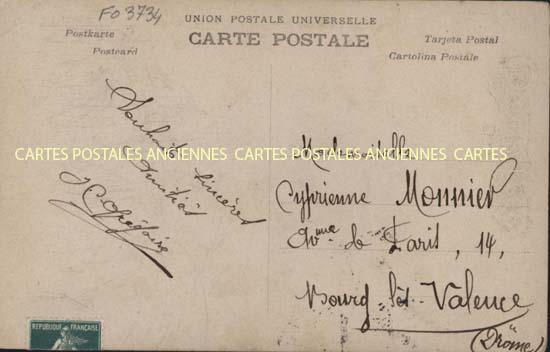 Fo 3734
UNION POSTALE UNIVERSELLE
CARTE POSTALE
Postkarte
Postcard
Tarjeta Postal
Cartolina Postale
Souhaits sincères
Amitiés
CARTES POSTALES ANCIENNES CARTES POSTALES ANCIENNES
Mademoiselle
Cyprienne Monnier
Avenue de Paris, 14,
Bourg-lès-Valence
(Drôme)
REPUBLIQUE FRANÇAISE